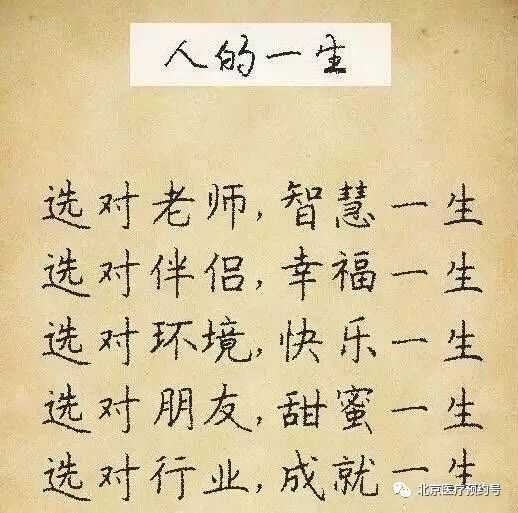 人的一生
选对老师,智慧一生
选对伴侣,幸福一生
选对环境,快乐一生
选对朋友,甜蜜一生
选对行业,成就一生
北京医疗预约号